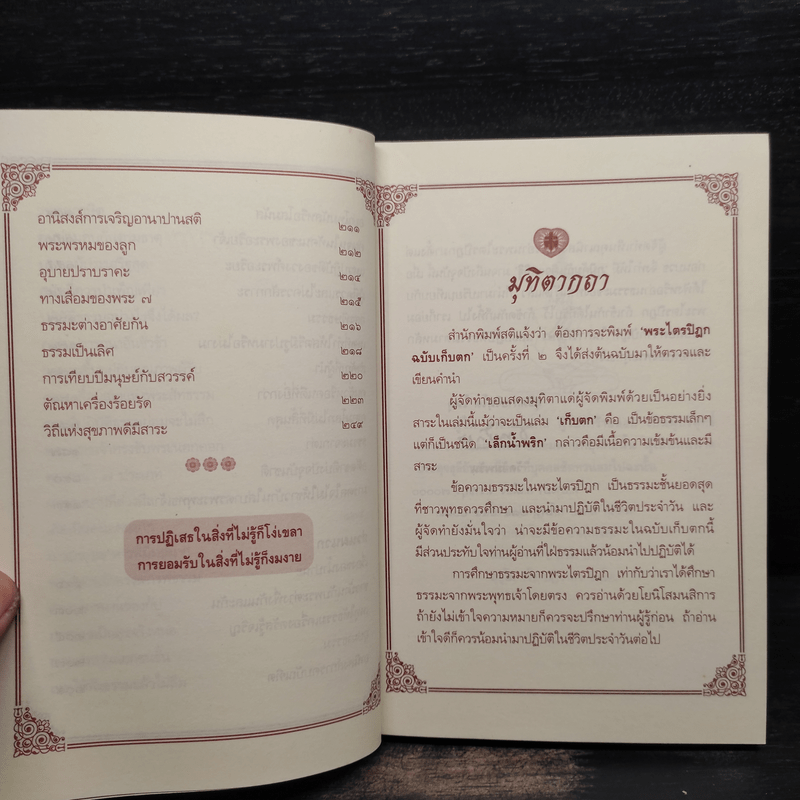 อานิสงส์การเจริญอานาปานสติ ๒๑๑
พระพรหมของลูก ๒๑๒
อุบายปราบราคะ ๒๑๔
ทางเสื่อมของพระ ๗ ๒๑๕
ธรรมะต่างอาศัยกัน ๒๑๖
ธรรมเป็นเลิศ ๒๑๘
การเทียบปีมนุษย์กับสวรรค์ ๒๒๐
ตัณหาเครื่องร้อยรัด ๒๒๓
วิถีแห่งสุขภาพดีมีสาระ ๒๔๙
การปฏิเสธในสิ่งที่ไม่รู้ก็โง่เขลา
การยอมรับในสิ่งที่ไม่รู้ก็งมงาย
มุทิตากถา
สำนักพิมพ์สติแจ้งว่า ต้องการจะพิมพ์ ‘พระไตรปิฎก
ฉบับเก็บตก’ เป็นครั้งที่ ๒ จึงได้ส่งต้นฉบับมาให้ตรวจและ
เขียนคำนำ
ผู้จัดทำขอแสดงมุทิตาแด่ผู้จัดพิมพ์ด้วยเป็นอย่างยิ่ง
สาระในเล่มนี้แม้ว่าจะเป็นเล่ม ‘เก็บตก’ คือ เป็นข้อธรรมเล็กๆ
แต่ก็เป็นชนิด ‘เล็กน้ำพริก’ กล่าวคือมีเนื้อความเข้มข้นและมี
สาระ
ข้อความธรรมะในพระไตรปิฎก เป็นธรรมะชั้นยอดสุด
ที่ชาวพุทธควรศึกษา และนำมาปฏิบัติในชีวิตประจำวัน และ
ผู้จัดทำยังมั่นใจว่า น่าจะมีข้อความธรรมะในฉบับเก็บตกนี้
มีส่วนประทับใจท่านผู้อ่านที่ใฝ่ธรรมแล้วน้อมนำไปปฏิบัติได้
การศึกษาธรรมะจากพระไตรปิฎก เท่ากับว่าเราได้ศึกษา
ธรรมะจากพระพุทธเจ้าโดยตรง ควรอ่านด้วยโยนิโสมนสิการ
ถ้ายังไม่เข้าใจความหมายก็ควรจะปรึกษาท่านผู้รู้ก่อน ถ้าอ่าน
เข้าใจดีก็ควรน้อมนำมาปฏิบัติในชีวิตประจำวันต่อไป